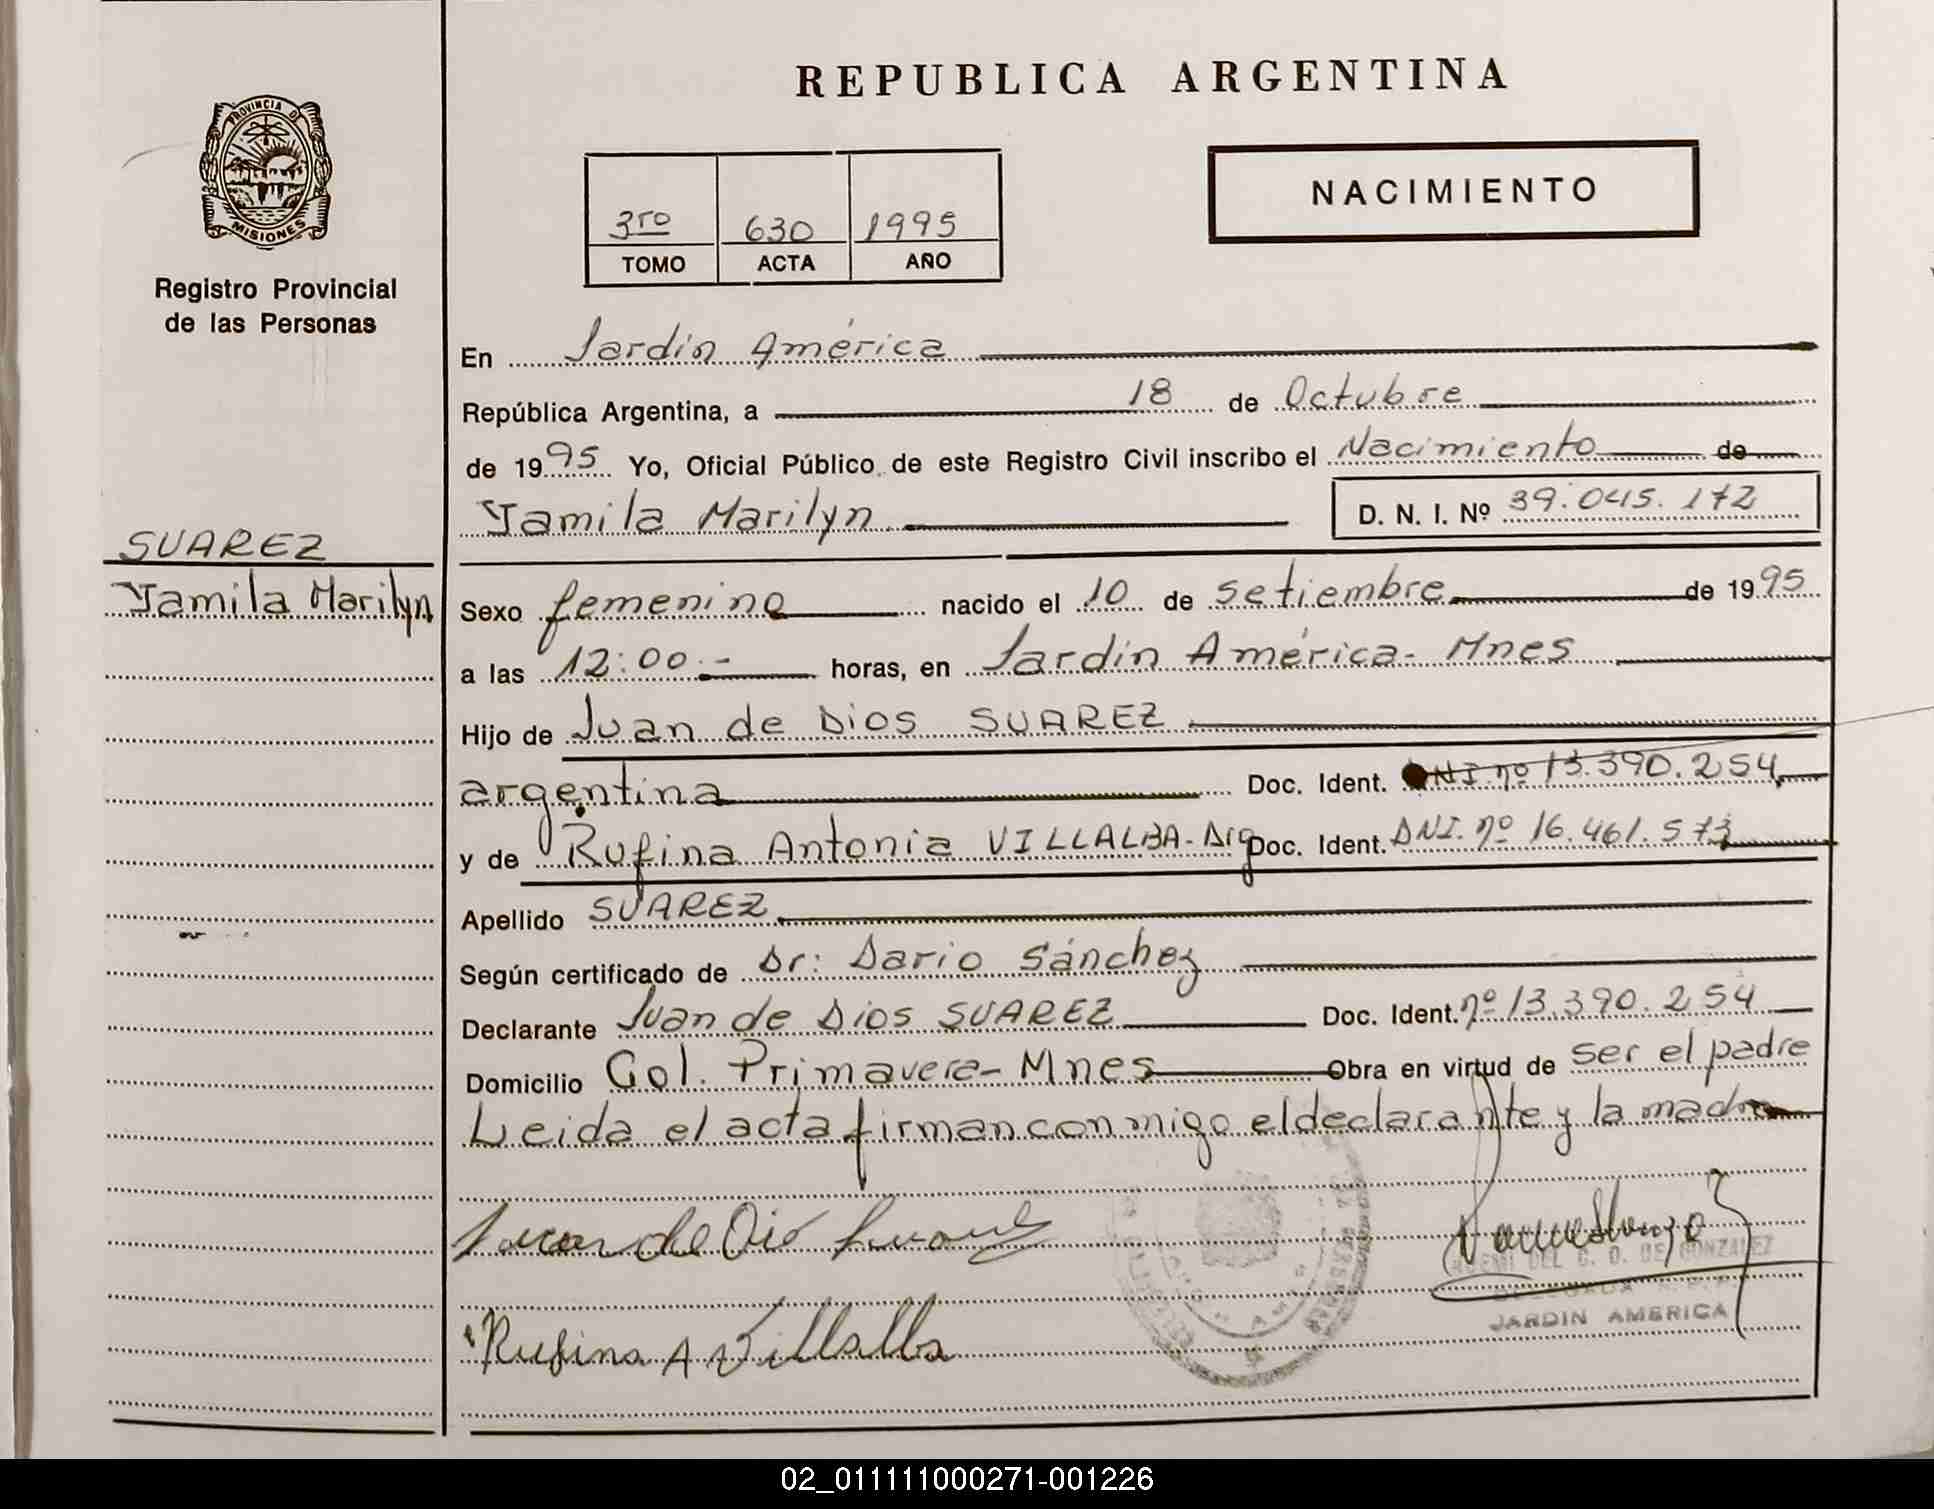 REPUBLICA ARGENTINA
PROVINCIA DE
MISIONES
Registro Provincial
de las Personas
3ro 630 1995
TOMO ACTA AÑO
NACIMIENTO
En Jardín América
República Argentina, a 18 de Octubre
de 1995 Yo, Oficial Público de este Registro Civil inscribo el Nacimiento de
Yamila Marilyn D. N. I. Nº 39.045.172
SUAREZ
Yamila Marilyn
Sexo femenino nacido el 10 de setiembre de 1995
a las 12:00.- horas, en Jardín América- Mnes
Hijo de Juan de Dios SUAREZ
argentina Doc. Ident. DNI. nº 13.390.254
y de Rufina Antonia VILLALBA- Arg Doc. Ident. DNI. nº 16.461.573
Apellido SUAREZ
Según certificado de Dr: Dario Sánchez
Declarante Juan de Dios SUAREZ Doc. Ident. nº 13.390.254
Domicilio Col. Primavera- Mnes Obra en virtud de ser el padre
Leida el acta firman conmigo el declarante y la madre
Juan de Dios Suarez
DEL C. D. DE GONZALEZ
JARDIN AMERICA
Rufina A Villalba
02_011111000271-001226